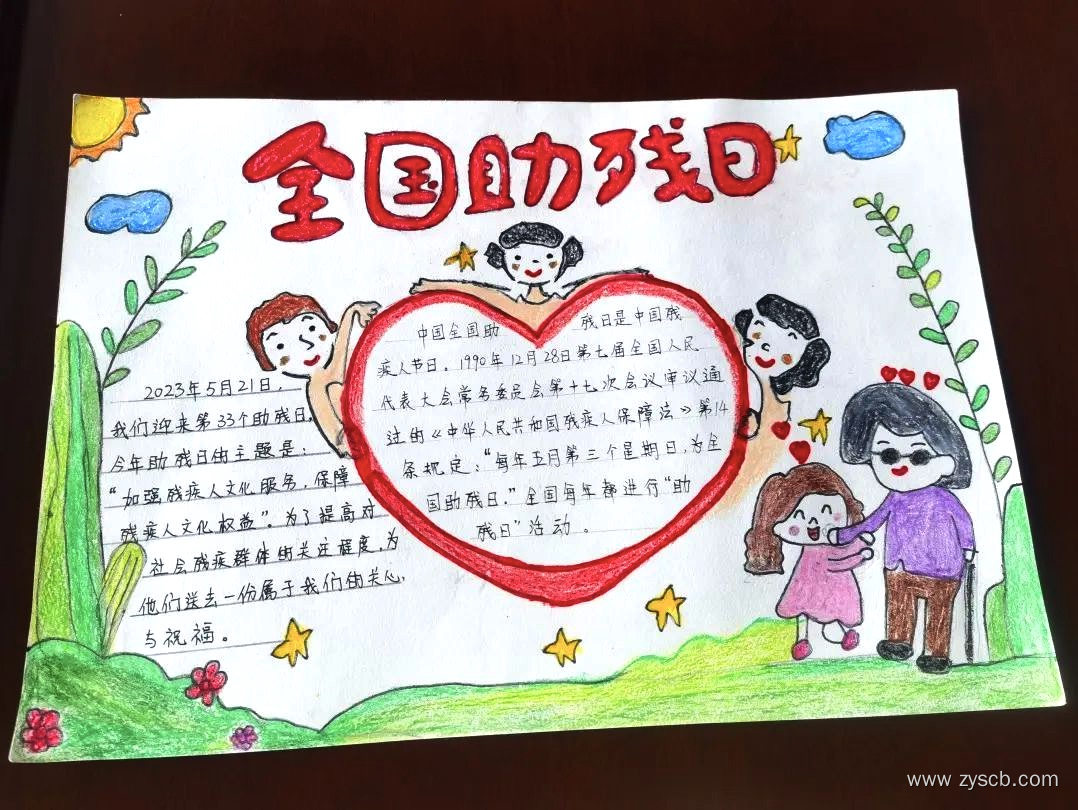 全国助残日
2023年5月21日,
我们迎来第33个助残日,
今年助残日的主题是:
“加强残疾人文化服务,保障
残疾人文化权益”。为了提高对
社会残疾群体的关注程度,为
他们送去一份属于我们的关心,
与祝福。
中国全国助 残日是中国残
疾人节日。1990年12月28日第七届全国人民
代表大会常务委员会第十七次会议审议通
过的《中华人民共和国残疾人保障法》第14
条规定:“每年五月第三个星期日,为全
国助残日.”全国每年都进行“助
残日”活动。
www.zyscb.com